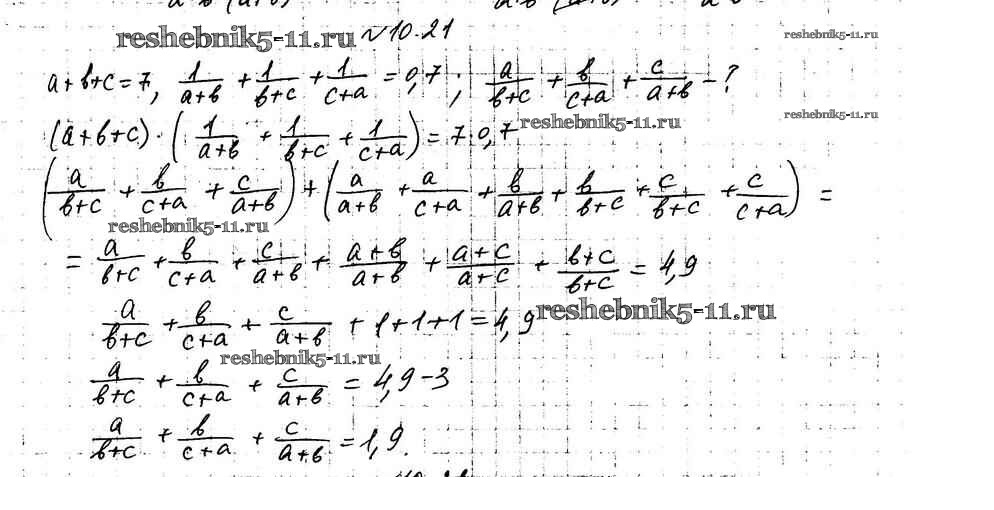 reshebnik5-11.ru №10.21 reshebnik5-11.ru
a+b+c=7, 1/(a+b) + 1/(b+c) + 1/(c+a) = 0,7; a/(b+c) + b/(c+a) + c/(a+b) - ?
(a+b+c)·(1/(a+b) + 1/(b+c) + 1/(c+a)) = 7·0,7 reshebnik5-11.ru reshebnik5-11.ru
(a/(b+c) + b/(c+a) + c/(a+b)) + (a/(a+b) + a/(c+a) + b/(a+b) + b/(b+c) + c/(b+c) + c/(c+a)) =
reshebnik5-11.ru
= a/(b+c) + b/(c+a) + c/(a+b) + (a+b)/(a+b) + (a+c)/(a+c) + (b+c)/(b+c) = 4,9
a/(b+c) + b/(c+a) + c/(a+b) + 1+1+1 = 4,9 reshebnik5-11.ru
reshebnik5-11.ru
a/(b+c) + b/(c+a) + c/(a+b) = 4,9-3
a/(b+c) + b/(c+a) + c/(a+b) = 1,9.